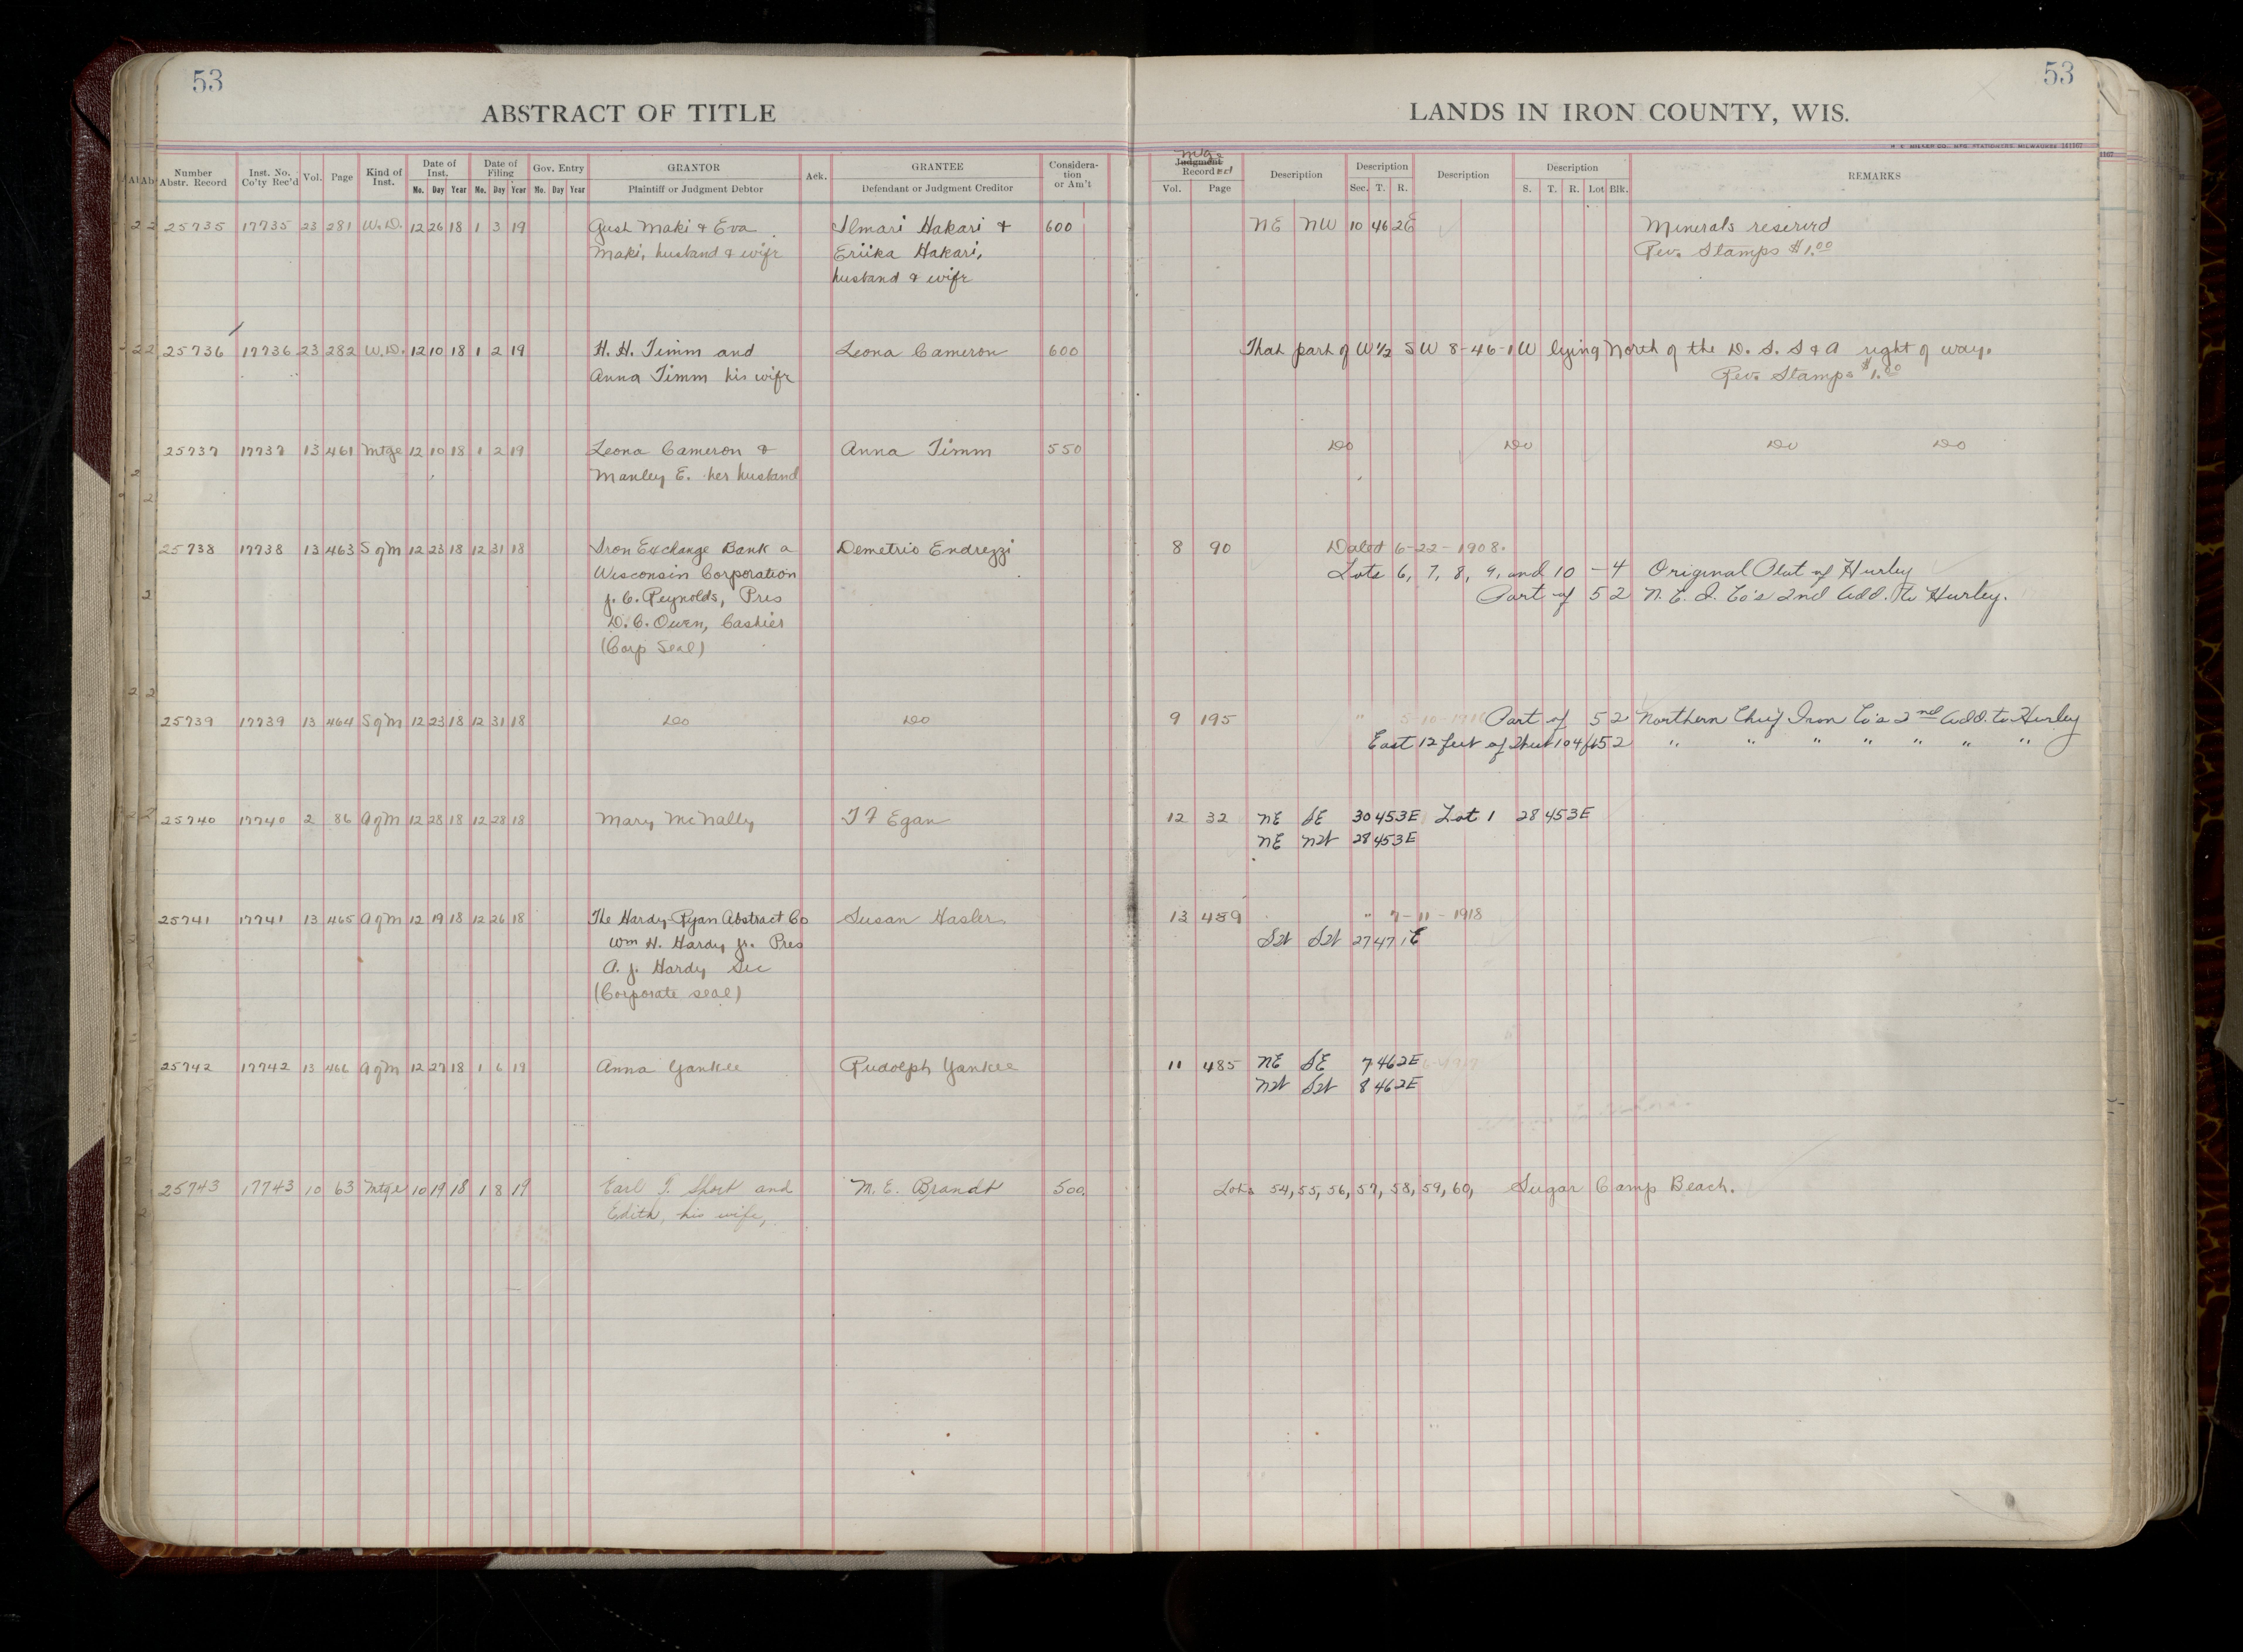 53
53
ABSTRACT OF TITLE
LANDS IN IRON COUNTY, WIS.
Number Abstr. Record Inst. No. Co'ty Rec'd Vol. Page Kind of Inst. Date of Inst. Mo. Day Year Date of Filing Mo. Day Year Gov. Entry Mo. Day Year GRANTOR Plaintiff or Judgment Debtor Ack. GRANTEE Defendant or Judgment Creditor Considera-tion or Am't
Mtge Judgment Recorded Vol. Page Description Description Sec. T. R. Description Description S. T. R. Lot Blk. REMARKS
25735 17735 23 281 W.D. 12 26 18 1 3 19 Gust Maki & Eva Ilmari Hakari & 600 NE NW 10 46 2E Minerals reserved
Maki, husband & wife Eriika Hakari, Rev. Stamps $1.00
husband & wife
25736 17736 23 282 W.D. 12 10 18 1 2 19 H. H. Timm and Leona Cameron 600 That part of W½ SW 8-46-1W lying North of the D. S. S & A right of way.
Anna Timm his wife Rev. Stamps $1.00
25737 17737 13 461 Mtge 12 10 18 1 2 19 Leona Cameron & Anna Timm 550 Do Do Do Do
Manley E. her husband
25738 17738 13 463 SgM 12 23 18 12 31 18 Iron Exchange Bank a Demetrio Endrezzi 8 90 Dated 6-22-1908.
Wisconsin Corporation Lots 6, 7, 8, 9, and 10 - 4 Original Plat of Hurley
J. C. Reynolds, Pres Part of 5 2 N. C. I. Co's 2nd Add. to Hurley.
D. C. Owen, Cashier
(Corp Seal)
25739 17739 13 464 SgM 12 23 18 12 31 18 Do Do 9 195 " Part of 5 2 Northern Chief Iron Co's 2nd Add. to Hurley
East 12 feet of West 104 ft 5 2 " " " " " " "
25740 17740 2 86 AgM 12 28 18 12 28 18 Mary McNally T F Egan 12 32 NE SE 30 45 3E Lot 1 28 45 3E
NE NW 28 45 3E
25741 17741 13 465 AgM 12 19 18 12 26 18 The Hardy-Ryan Abstract Co Susan Hasler 13 459 " 7-11-1918
Wm H. Hardy Jr. Pres SW SW 27 47 1E
A. J. Hardy Sec
(Corporate seal)
25742 17742 13 466 AgM 12 27 18 1 6 19 Anna Yankee Rudolph Yankee 11 485 NE SE 7 46 2E
NW SW 8 46 2E
25743 17743 10 63 Mtge 10 19 18 1 8 19 Earl T. Short and M. E. Brandt 500. Lots 54, 55, 56, 57, 58, 59, 60, Sugar Camp Beach.
Edith, his wife,